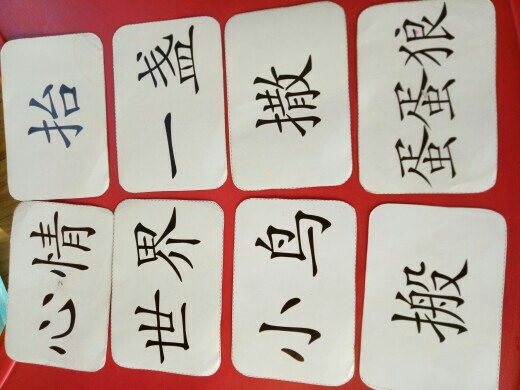 心情
抬
世界
一盏
小鸟
撒
搬
蛋蛋狼